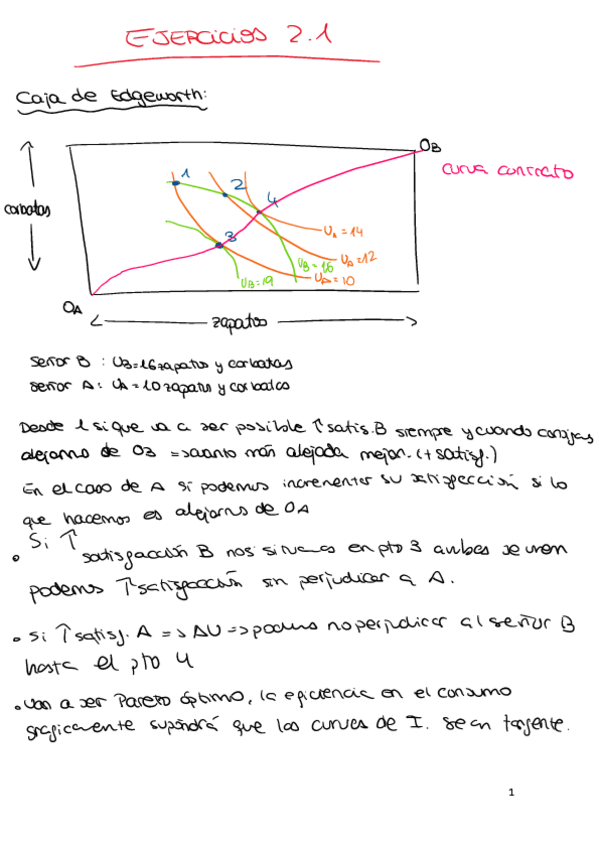 EJERCICIOS 2.1
Caja de Edgeworth:
OB
curva contrato
corbatas
1
2
4
3
UA = 14
UA = 12
UB = 16
UA = 10
UB = 19
OA
zapatos
señor B : UB=16 zapatos y corbatas
señor A: UA = 10 zapatos y corbatas
Desde 1 si que va a ser posible ↑ satis. B siempre y cuando
alejarnos de OB => cuanto más alejada mejor. (+ satisf.)
En el caso de A si podemos incrementar su satisfacción si lo
que hacemos es alejarnos de OA
• Si ↑
satisfacción B nos situamos en pto 3 ambas se unen
podemos ↑ satisfacción sin perjudicar a A.
• Si ↑ satisf. A => ΔU => podemos no perjudicar al señor B
hasta el pto 4
• Van a ser Pareto óptimo, la eficiencia en el consumo
graficamente supondrá que las curvas de I. sean tangente.
1